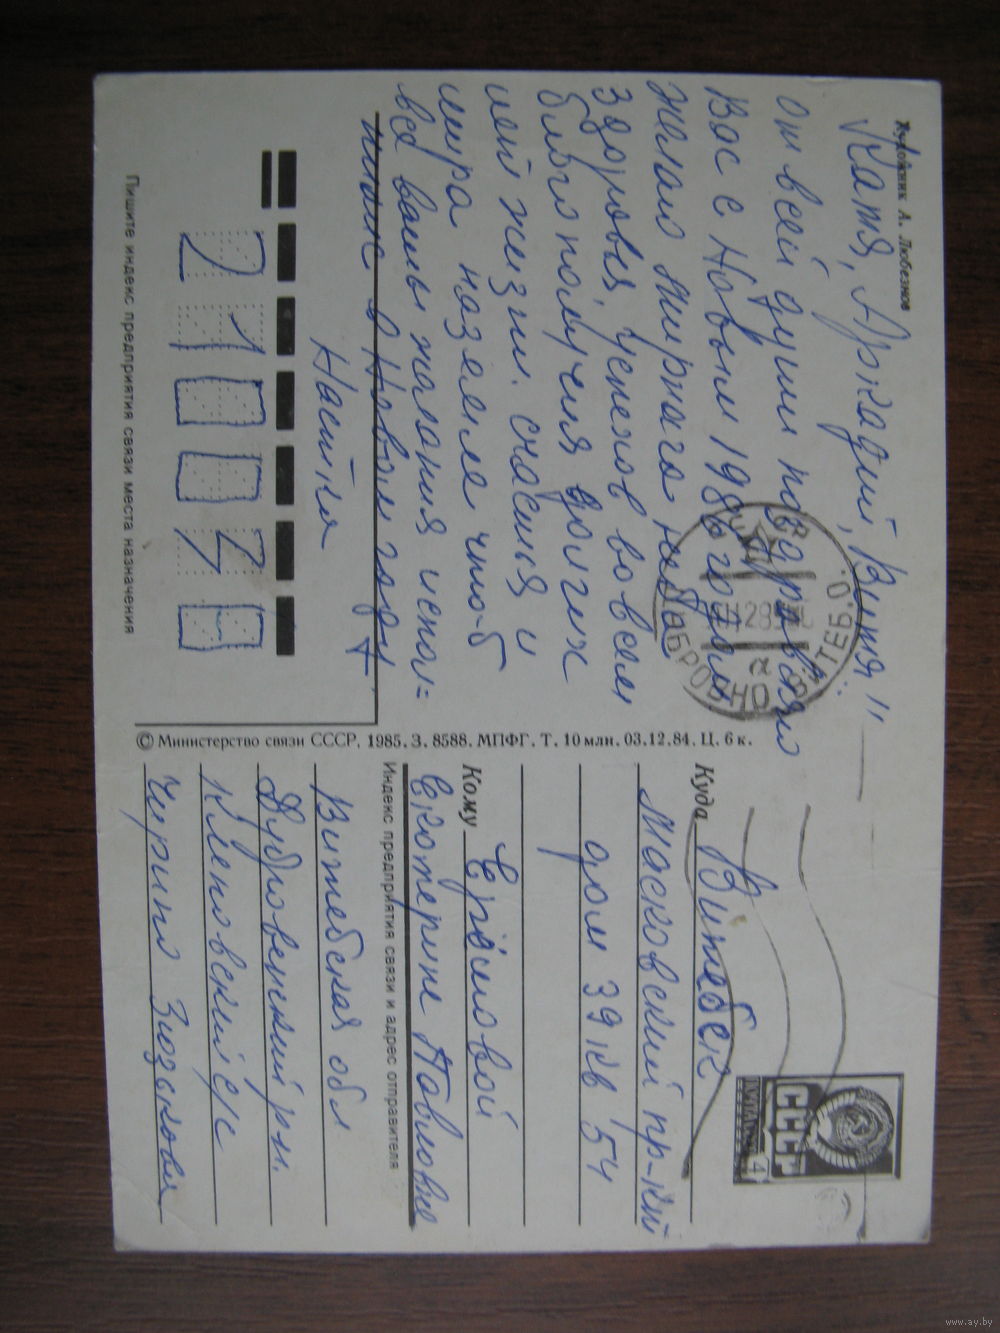 Художник А. Любезнов
Катя, Аркадий, Витя!!
от всей души поздравляю
Вас с Новым 1986 годом
желаю мирнага неба
здоровья, успехов во всем
благополучия долгих
лет жизни. счастья и
мира на земле чтоб
все вашы желания испол=
в Новом году
Настя
21004 0
Пишите индекс предприятия связи места назначения
© Министерство связи СССР, 1985. З. 8588. МПФГ. Т. 10 млн. 03.12.84. Ц. 6 к.
СССР
ПОЧТА
4
ДУБРОВНО
Куда Витебск
Масковский пр-кт
дом 39 кв 54
Кому Ермоловой
Екотерине Павловне
Индекс предприятия связи и адрес отправителя
Витебская обл
Дубровенский р-н.
с/с
Чирино
www.ay.by